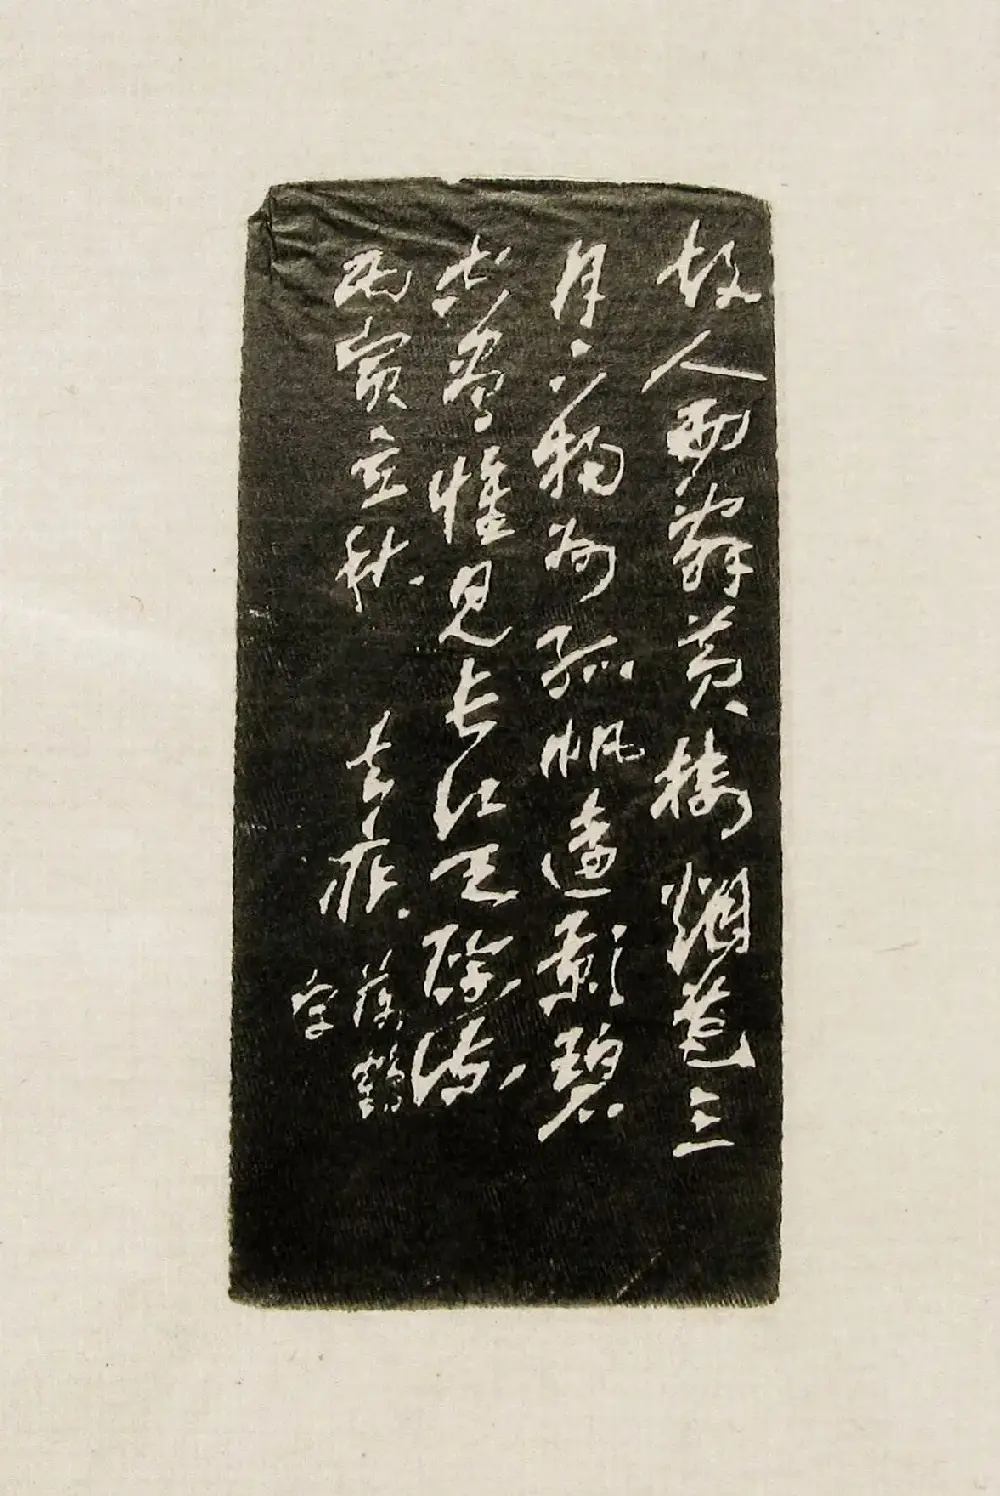 故人西辭黄樓烟花三
月下揚州孤帆遠影碧
空盡惟見長江天際流
丙寅立秋 去疾
落鶴
字